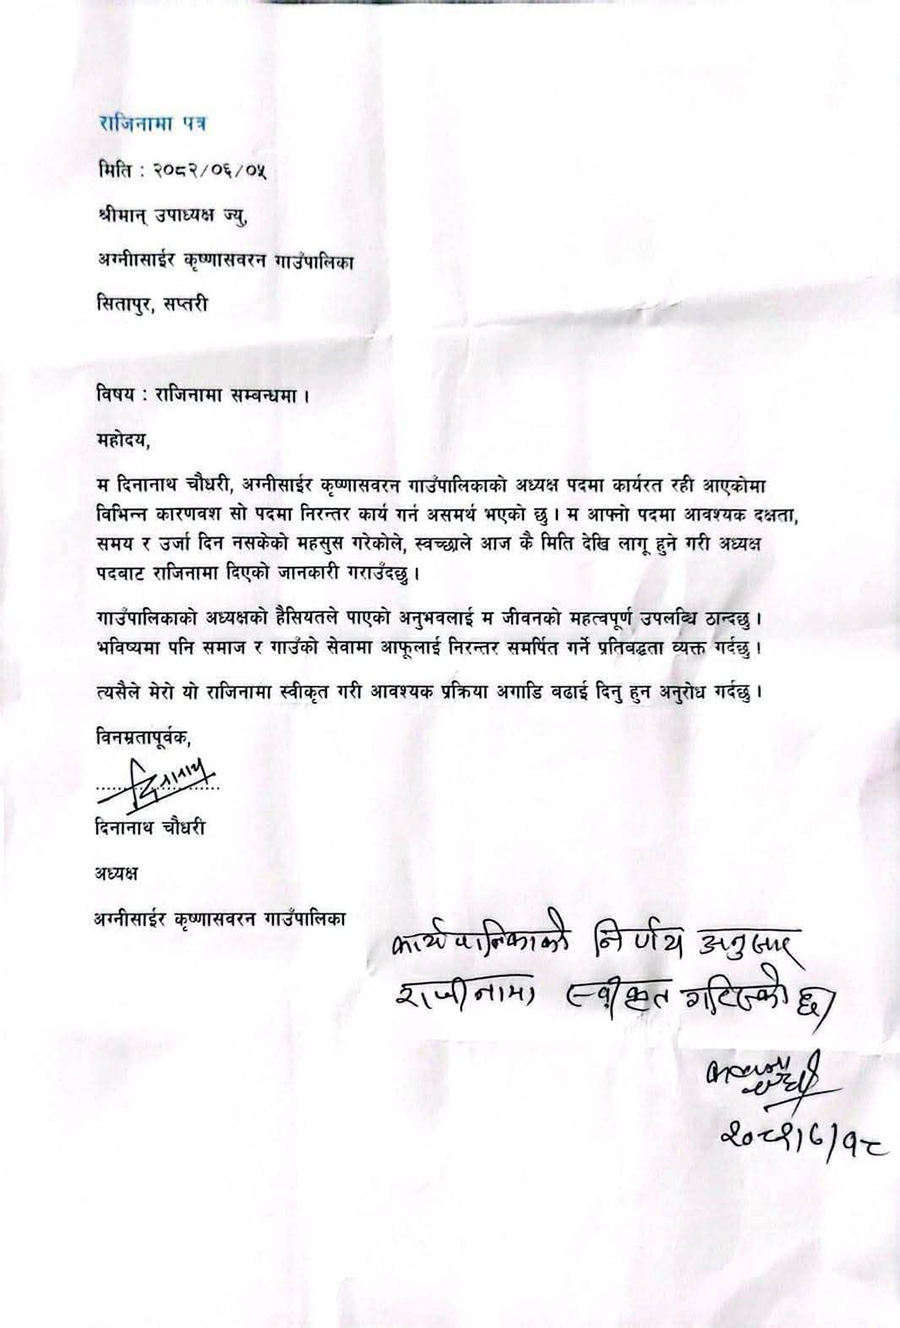 राजिनामा पत्र
मिति : २०८२/०६/०५
श्रीमान् उपाध्यक्ष ज्यु,
अग्नीासाईर कृष्णासवरन गाउँपालिका
सितापुर, सप्तरी
विषय : राजिनामा सम्बन्धमा ।
महोदय,
म दिनानाथ चौधरी, अग्नीसाईर कृष्णासवरन गाउँपालिकाको अध्यक्ष पदमा कार्यरत रही आएकोमा
विभिन्न कारणवश सो पदमा निरन्तर कार्य गर्न असमर्थ भएको छु । म आफ्नो पदमा आवश्यक दक्षता,
समय र उर्जा दिन नसकेको महसुस गरेकोले, स्वच्छाले आज कै मिति देखि लागू हुने गरी अध्यक्ष
पदबाट राजिनामा दिएको जानकारी गराउँदछु ।
गाउँपालिकाको अध्यक्षको हैसियतले पाएको अनुभवलाई म जीवनको महत्वपूर्ण उपलब्धि ठान्दछु ।
भविष्यमा पनि समाज र गाउँको सेवामा आफूलाई निरन्तर समर्पित गर्ने प्रतिबद्धता व्यक्त गर्दछु ।
त्यसैले मेरो यो राजिनामा स्वीकृत गरी आवश्यक प्रक्रिया अगाडि बढाई दिनु हुन अनुरोध गर्दछु ।
विनम्रतापूर्वक,
दिनानाथ
दिनानाथ चौधरी
अध्यक्ष
अग्नीसाईर कृष्णासवरन गाउँपालिका
कार्यपालिकाको निर्णय अनुसार
राजीनामा स्वीकृत गरिएको छ।